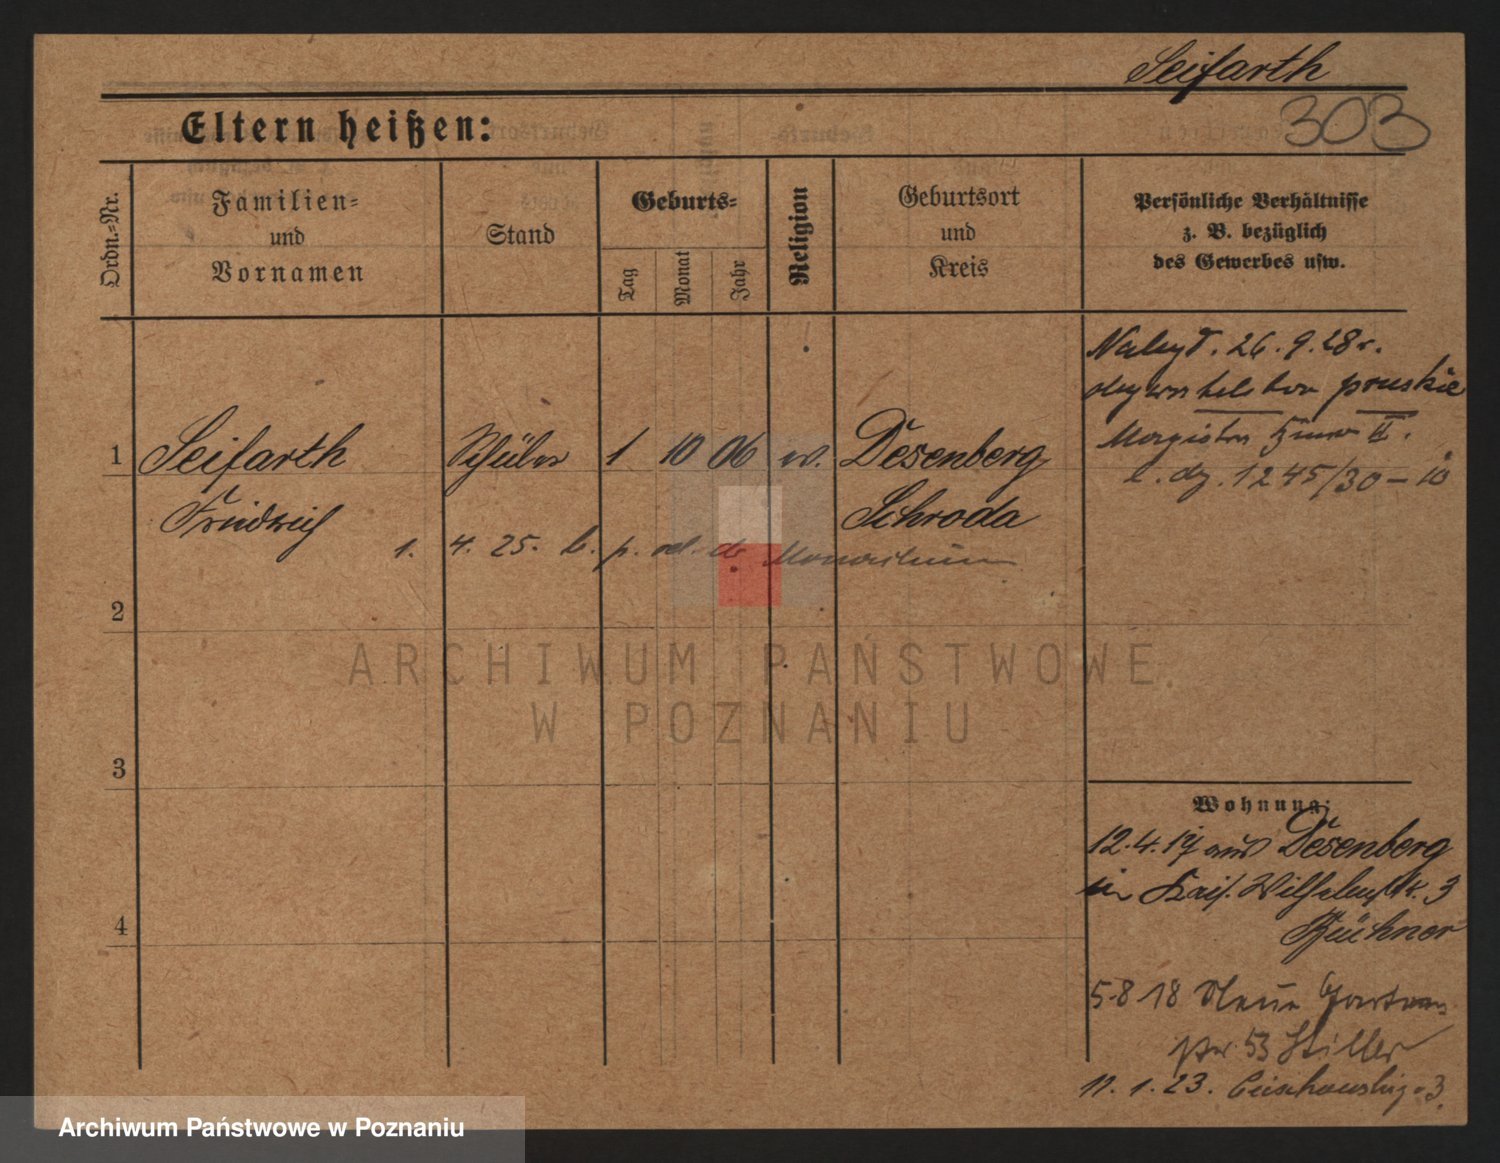 Seifarth
303
Eltern heißen:
Ordn.-Nr.
Familien-
und
Vornamen
Stand
Geburts-
Tag
Monat
Jahr
Religion
Geburtsort
und
Kreis
Persönliche Verhältnisse
z. B. bezüglich
des Gewerbes usw.
26. 9. 28 r.
pruskie
II.
l. dz. 1245/30 –
1
Seifarth
Schüler
1
10
06
ev.
Desenberg
Friedrich
Schroda
1. 4. 25. b. p. od. do Monachium
2
ARCHIWUM PAŃSTWOWE
W POZNANIU
3
Wohnung:
12.4.17 aus Desenberg
in Kais. Wilhelmstr. 3
Büchner
4
5.8.18 Neue Garten
53 Hiller
11. 1. 23. 3.
Archiwum Państwowe w Poznaniu